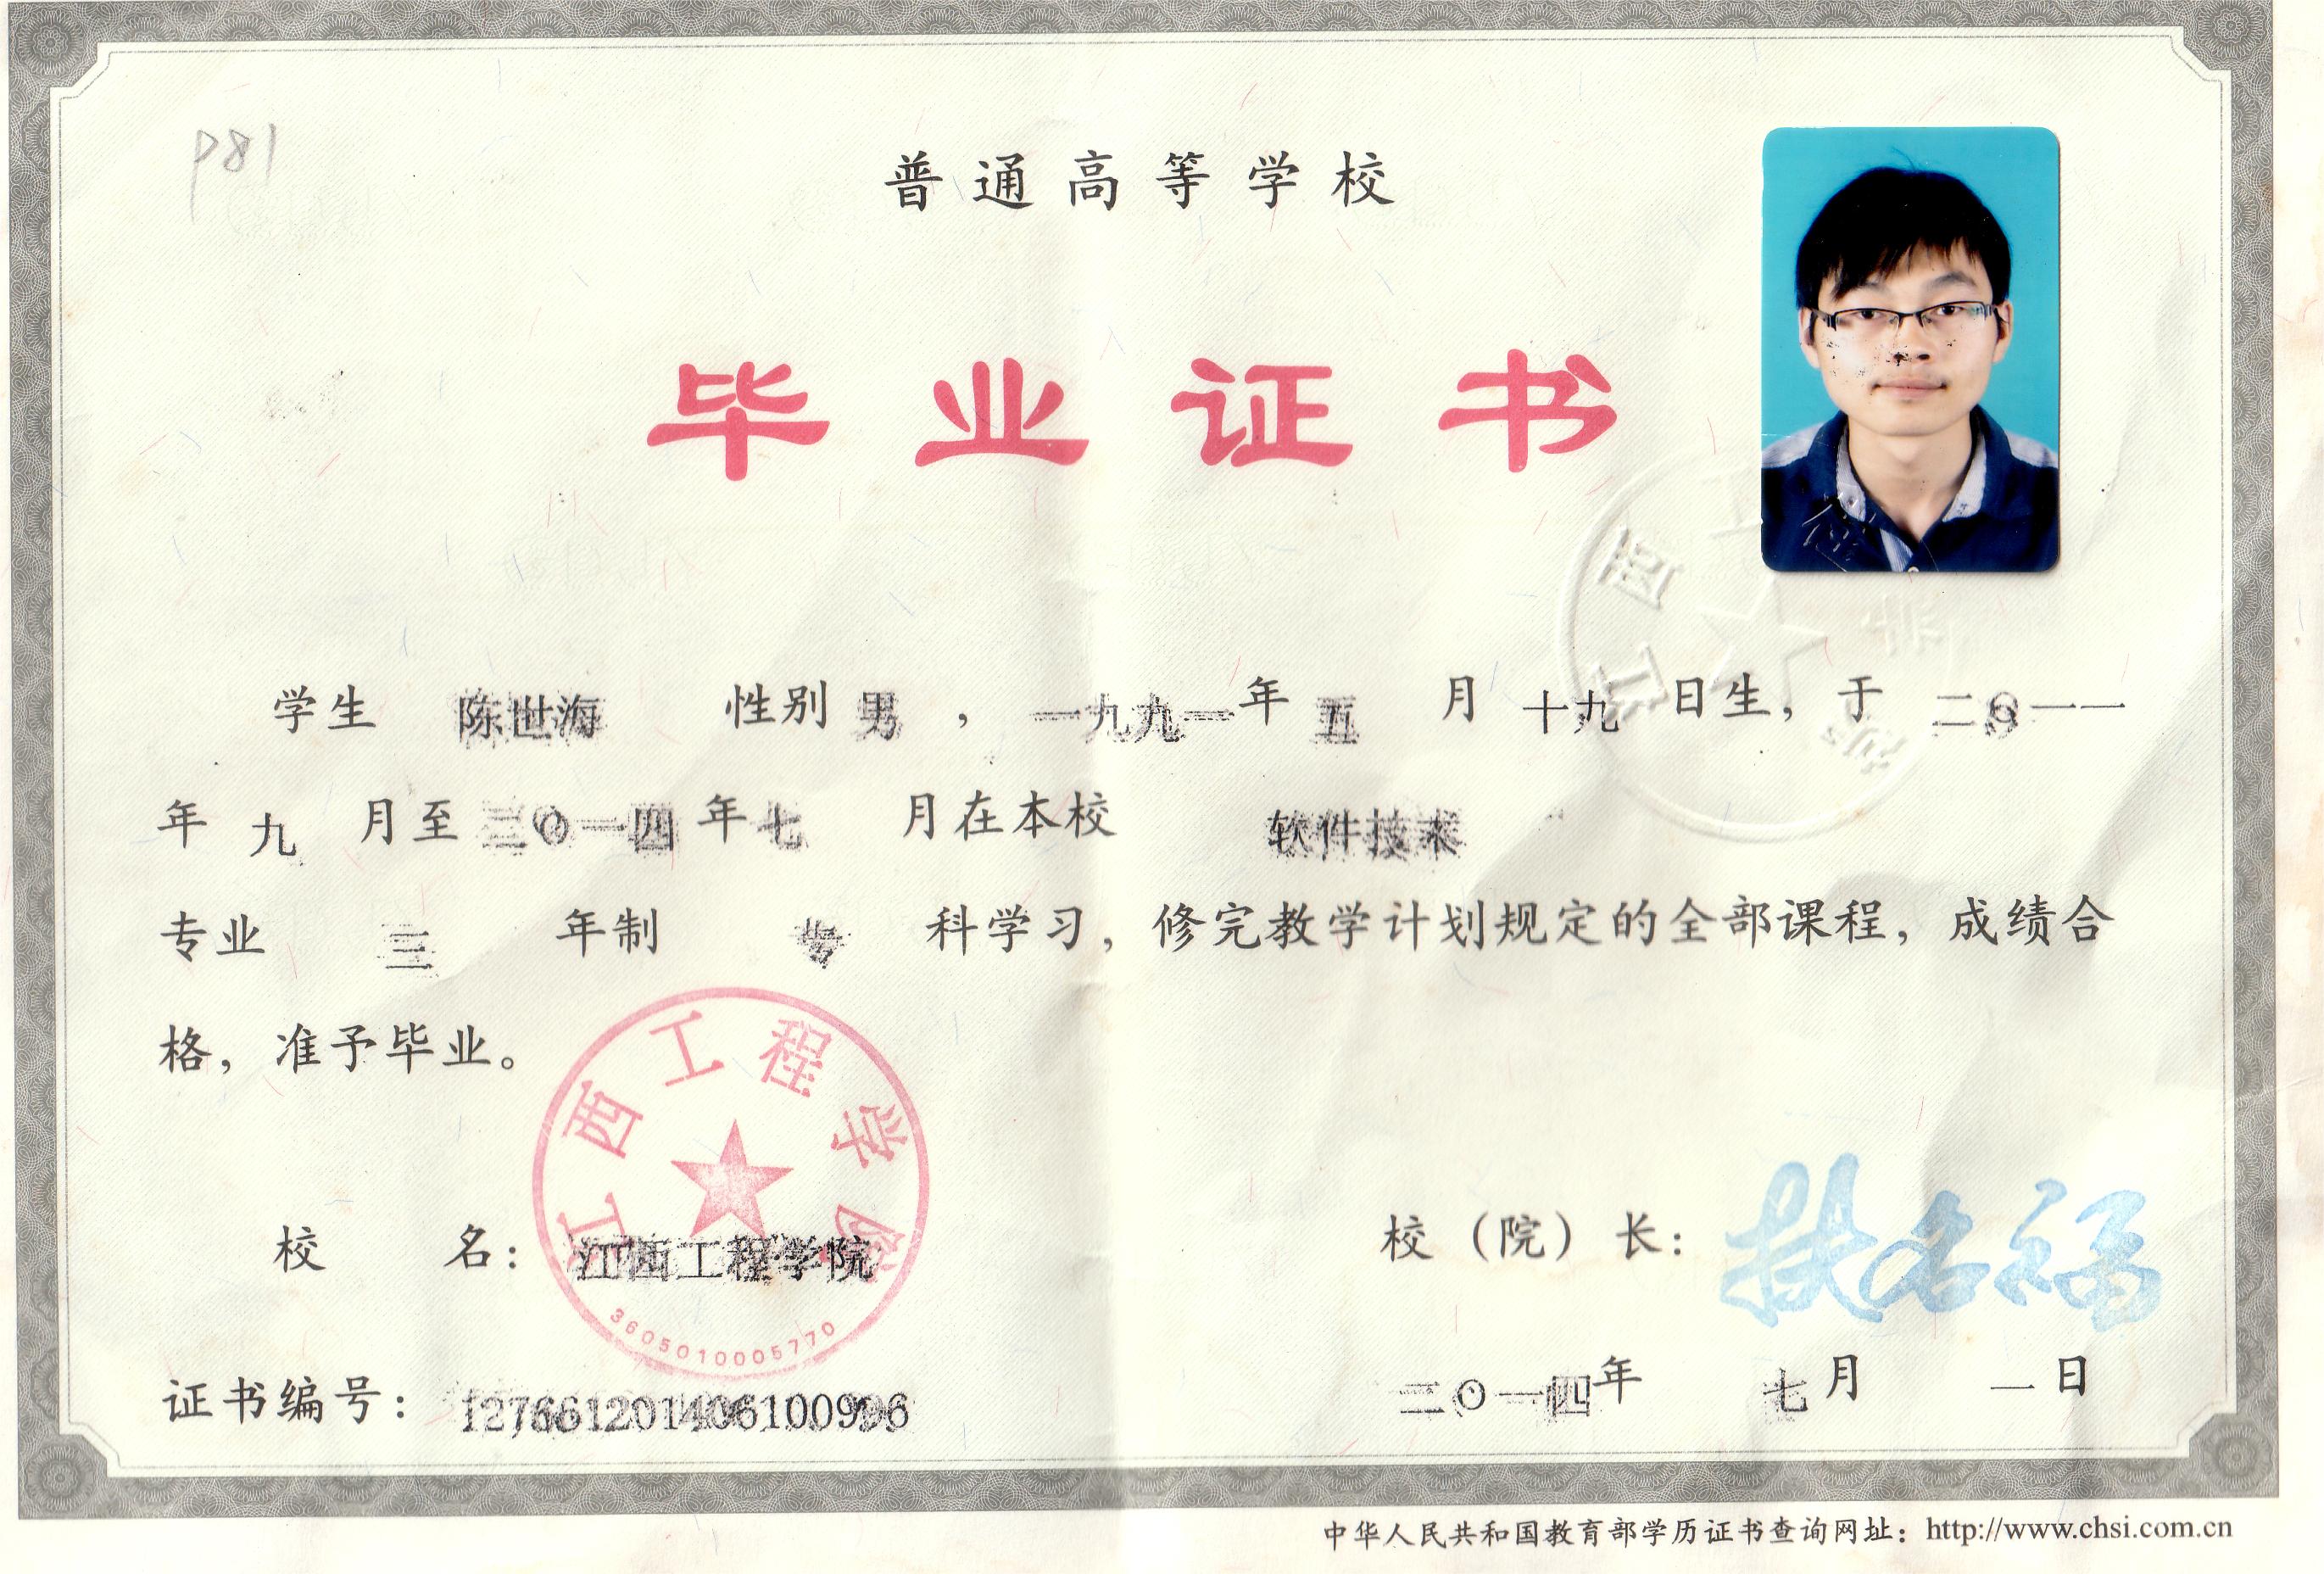 p81
普通高等学校
毕业证书
学生 陈世海 性别 男 ，一九九一年 五 月 十九 日生，于 二〇一一
年 九 月至 二〇一四 年 七 月在本校 软件技术
专业 三 年制 专 科学习，修完教学计划规定的全部课程，成绩合
格，准予毕业。
江西工程学院
3605010005770
校 名：江西工程学院
校（院）长：
证书编号：127661201406100996
二〇一四年 七月 一日
中华人民共和国教育部学历证书查询网址：http://www.chsi.com.cn